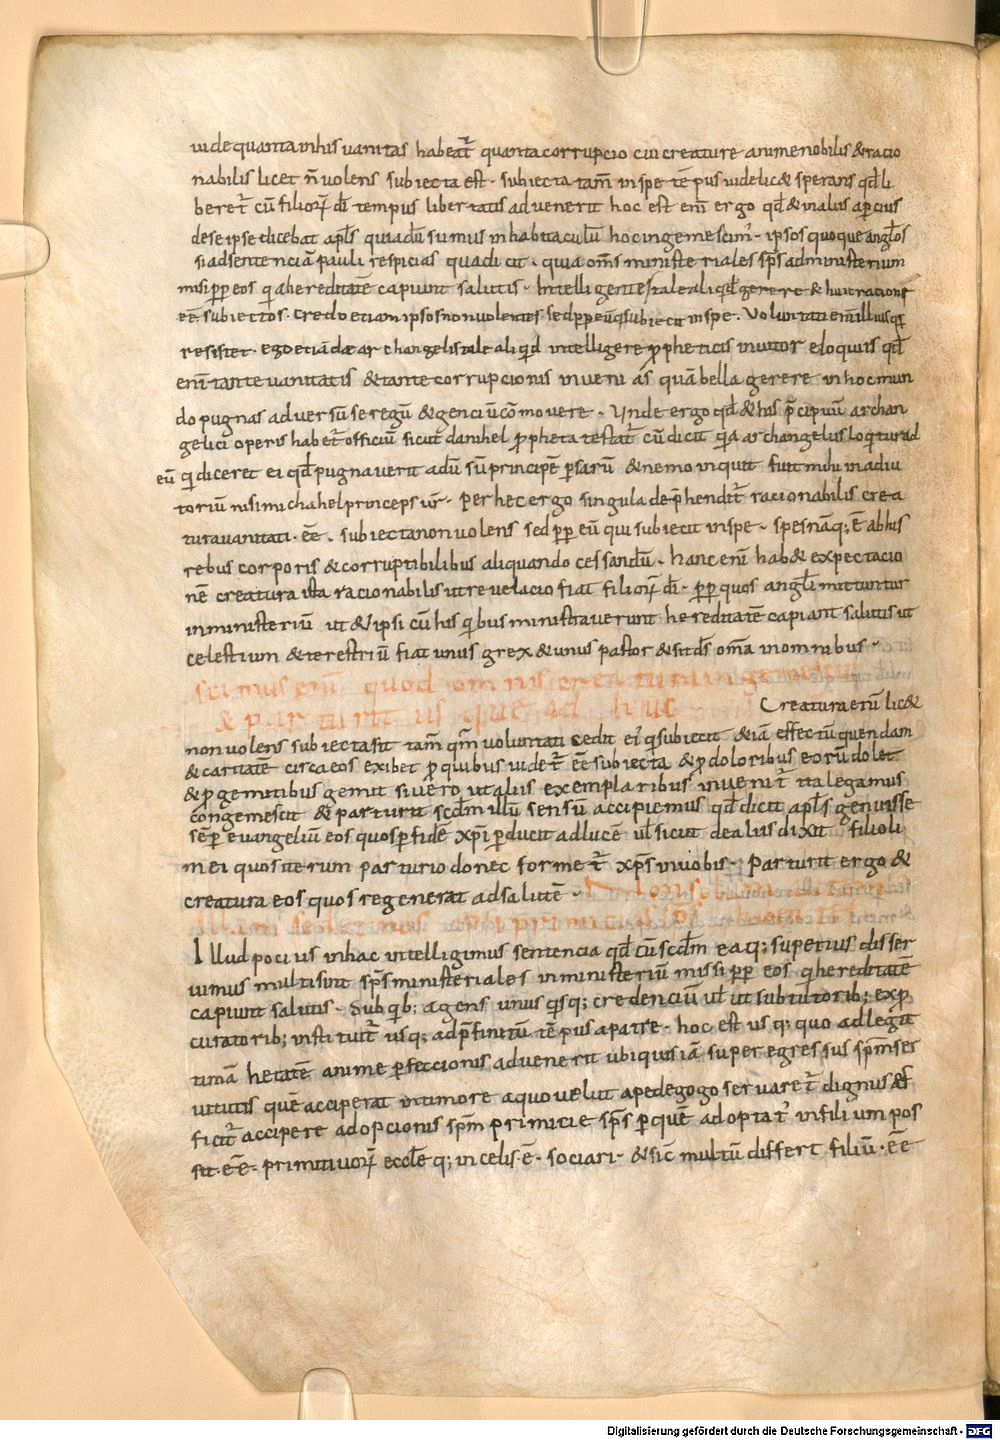 uide quanta inhis uanitas habeat̄ quanta corrupcio cui creature anime nobilis & racio
nabilis licet n̄ uolens subiecta est · subiecta tam̄ inspe tēpus uidelic& sperans qd̄ li
beret̄ cū filioꝝ dī tempus libertatis aduenerit hoc est enī ergo qd̄ & in aliis apercius
dese ipse dicebat apl̄s quiadū sumus inhabitaculū hoc ingemescim̄ · ipsos quoque angl̄os
si adsentenciā pauli respicias qua dicit · quia om̄s ministeriales sp̄s ad ministerium
misi pp̄ eos q̄ hereditatē capiunt salutis · Intelligentes tale aliqd̄ gerere & huic racione
eē subiectos · credo etiam ipsos non uolentes sed pp̄ eū q̄ subiecit inspe · Voluntati enī illius q̄s
resistet · ego etiā de archangelis tale aliqid̄ intelligere ꝓpheticis inuitor eloquiis qd̄
enī tante uanitatis & tante corrupcionis inueniam̄s quā bella gerere in hoc mun
do pugnas aduersū se regū & genciū cōmouere · Unde ergo qd̄ & his p̄cipuū archan
gelici operis habet̄ officiū sicut danihel ꝓpheta testat̄ cū dicit q̄a archangelus loq̄tur ad
eū q̄ diceret ei qd̄ pugnauerit adū sū principē ꝑsarū & nemo inquit fuit mihi in adiu
toriū nisi michahel princeps ūr · Per hec ergo singula dep̄hendit̄ racionabilis crea
tura uanitati · eē · subiecta non uolens sed pp̄ eū qui subiecit inspe · spes nāq; ē abhis
rebus corporis & corruptibilibus aliquando cessandū · hanc enī hab& expectacio
nē creatura ista racionabilis ut reuelacio fiat filioꝝ dī · pp̄ quos angl̄i mittuntur
inministeriū ut & ipsi cū his q̄ibus ministrauerunt hereditatē capiant salutis ut
celestium & terestriū fiat unus grex & unus pastor & sit ds̄ om̄a inomnibus ·
scimus enī quod omnis creatura ingemescit
& parturit usque adhuc
Creatura enī lic&
non uolens subiecta sit tam̄ qm̄ uoluntati cedit ei q̄ subiecit & iā effectū quendam
& caritatē circa eos exibet ꝓ quibus uidet̄ eē subiecta & ꝓ doloribus eorū dolet
& ꝓ gemitibus gemit siuero ut aliis exemplaribus inuenit̄ ita legamus
congemescit & parturit scd̄m illū sensū accipiemus qd̄ dicit apl̄s genuisse
sēꝑ euangeliū eos quos ꝑ fidē xp̄i ꝑducit ad lucē ul̄ sicut de aliis dixit filioli
mei quos iterum parturio donec formet̄ xp̄s inuobis · Parturit ergo &
creatura eos quos regenerat adsalutē ·
Illud pocius inhac intelligimus sentencia qd̄ cū scd̄m eaq; superius disser
uimus multi sint sp̄s ministeriales inministeriū missi pp̄ eos q̄ hereditatē
capiunt salutis · Sub quib; agens unus q̄sq; credenciū ul̄ ut sub tutorib; exp̄
curatorib; instituit̄ usq; adp̄finitū tēpus apatre · hoc est usq; quo ad legiti
timā hetatē anime ꝑfeccionis aduenerit ubiquis iā superegressus sp̄m ser
uitutis quē acciperat intimore aquo uelut apedegogo seruaret̄ dignus ef
ficit̄ accipere adopcionis sp̄m primicie sp̄s ꝑquē adoptat̄ infilium pos
sit · eē · primitiuorꝝ eccle q; in celis · ē · sociari · & sic multū differt filiū · eē
Digitalisierung gefördert durch die Deutsche Forschungsgemeinschaft - DFG